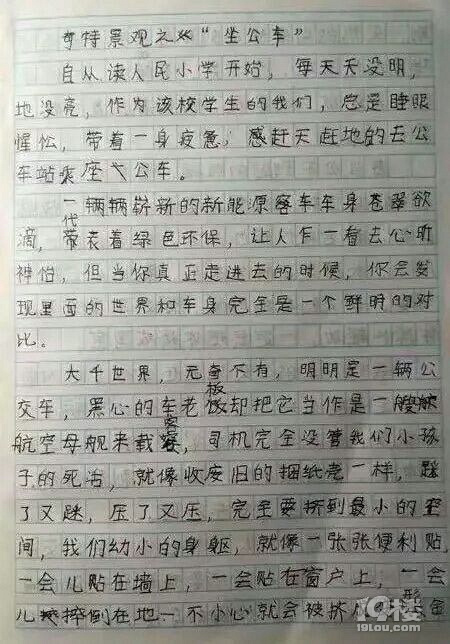 奇特景观之"坐公车"
自从读人民小学开始，每天天没明，
地没亮，作为该校学生的我们，总是睡眼
惺忪，带着一身疲惫，感赶天赶地的去公
车站乘座公车。
一辆辆崭新的新能源客车车身苍翠欲
滴，代表着绿色环保，让人乍一看去心旷
神怡，但当你真正走进去的时候，你会发
现里面的世界和车身完全是一个鲜明的对
比。
大千世界，无奇不有，明明是一辆公
交车，黑心的车老板却把它当作是一艘
航空母舰来载客，司机完全没管我们小孩
子的死活，就像收废旧的捆纸壳一样，踩
了又踩，压了又压，完全要挤到最小的空
间，我们幼小的身躯，就像一张张便利贴，
一会儿贴在墙上，一会贴在窗户上，一会
儿摔倒在地一不小心就会被挤成
19楼
19lou.com